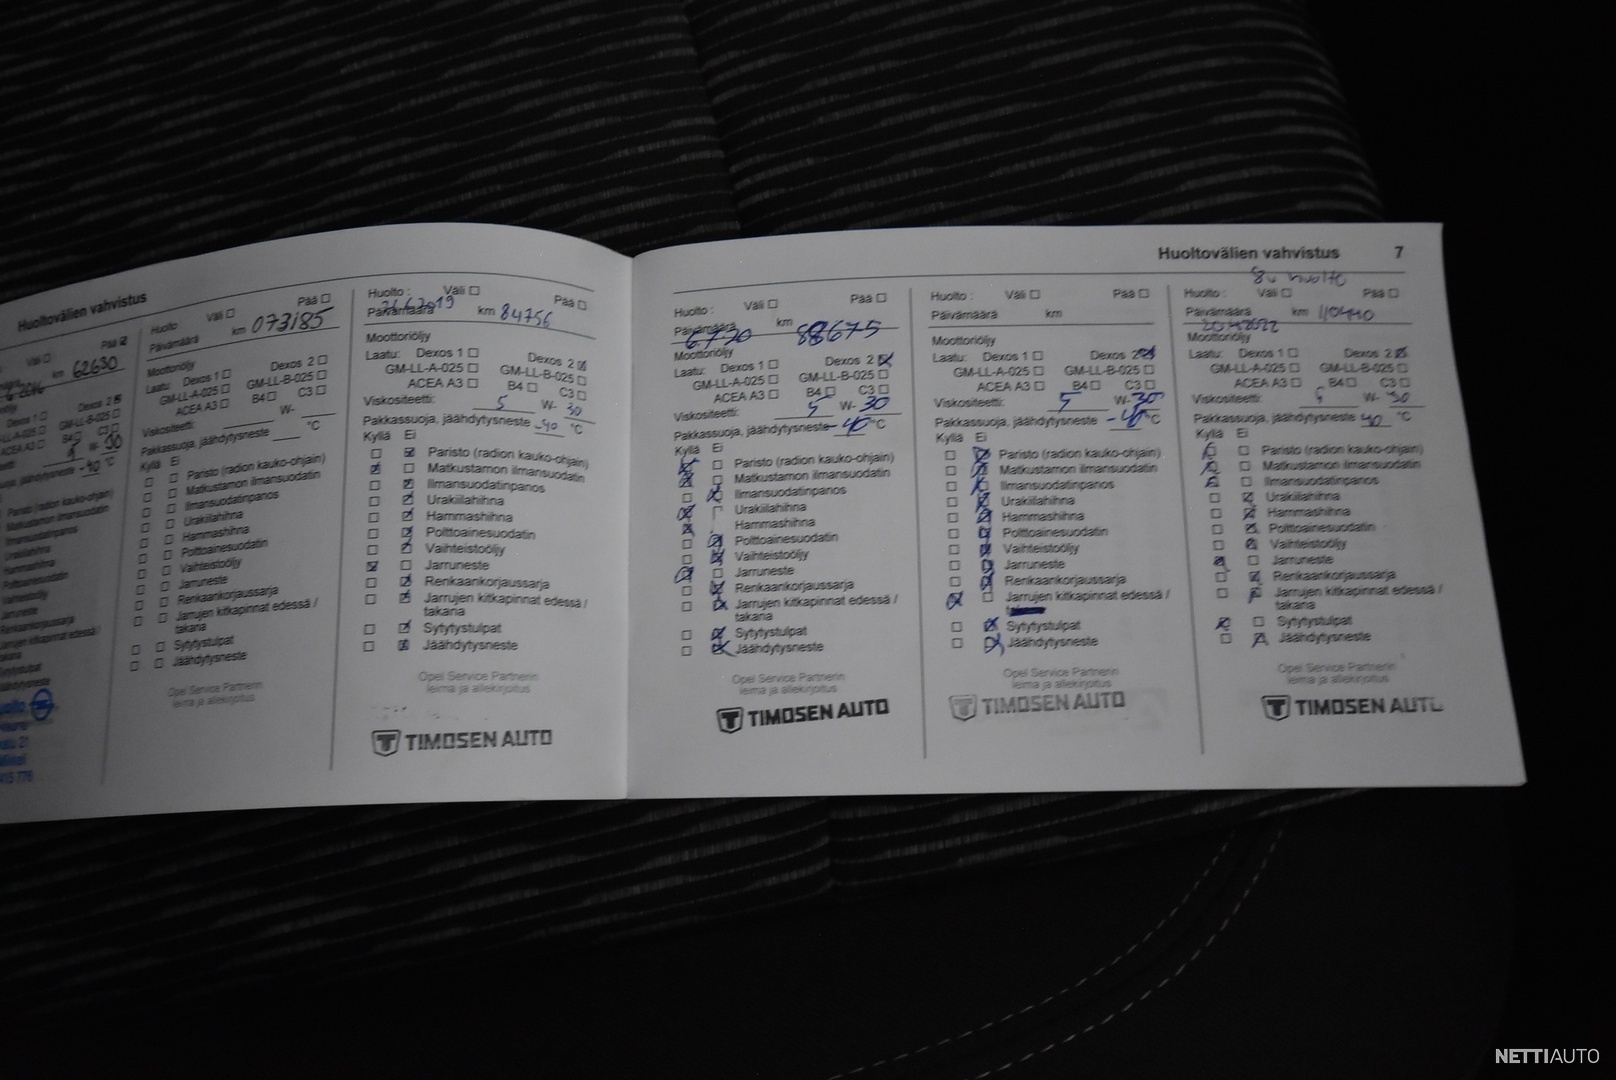 Huoltovälien vahvistus
Väli
Pää
km 62630
Dexos 2
W- 30
-40 °C
Huolto
Väli
Pää
Päivämäärä
km 073185
Moottoriöljy
Laatu: Dexos 1
Dexos 2
GM-LL-A-025
GM-LL-B-025
ACEA A3
B4
C3
Viskositeetti:
W-
Pakkassuoja, jäähdytysneste
°C
Kyllä Ei
Paristo (radion kauko-ohjain)
Matkustamon ilmansuodatin
Ilmansuodatinpanos
Urakiilahihna
Hammashihna
Polttoainesuodatin
Vaihteistoöljy
Jarruneste
Renkaankorjaussarja
Jarrujen kitkapinnat edessä /
takana
Sytytystulpat
Jäähdytysneste
Opel Service Partnerin
leima ja allekirjoitus
Huolto :
Väli
Pää
26.6.2019
Päivämäärä
km 84756
Moottoriöljy
Laatu: Dexos 1
Dexos 2
GM-LL-A-025
GM-LL-B-025
ACEA A3
B4
C3
Viskositeetti: 5 W- 30
Pakkassuoja, jäähdytysneste -40 °C
Kyllä Ei
Paristo (radion kauko-ohjain)
Matkustamon ilmansuodatin
Ilmansuodatinpanos
Urakiilahihna
Hammashihna
Polttoainesuodatin
Vaihteistoöljy
Jarruneste
Renkaankorjaussarja
Jarrujen kitkapinnat edessä /
takana
Sytytystulpat
Jäähdytysneste
Opel Service Partnerin
leima ja allekirjoitus
TIMOSEN AUTO
Huoltovälien vahvistus 7
Huolto :
Väli
Pää
Päivämäärä
km 88675
Moottoriöljy
Laatu: Dexos 1
Dexos 2
GM-LL-A-025
GM-LL-B-025
ACEA A3
B4
C3
Viskositeetti: 5 W- 30
Pakkassuoja, jäähdytysneste -40 °C
Kyllä Ei
Paristo (radion kauko-ohjain)
Matkustamon ilmansuodatin
Ilmansuodatinpanos
Urakiilahihna
Hammashihna
Polttoainesuodatin
Vaihteistoöljy
Jarruneste
Renkaankorjaussarja
Jarrujen kitkapinnat edessä /
takana
Sytytystulpat
Jäähdytysneste
Opel Service Partnerin
leima ja allekirjoitus
TIMOSEN AUTO
Huolto :
Väli
Pää
Päivämäärä
km
Moottoriöljy
Laatu: Dexos 1
Dexos 2
GM-LL-A-025
GM-LL-B-025
ACEA A3
B4
C3
Viskositeetti: 5 W-30
Pakkassuoja, jäähdytysneste -40 °C
Kyllä Ei
Paristo (radion kauko-ohjain)
Matkustamon ilmansuodatin
Ilmansuodatinpanos
Urakiilahihna
Hammashihna
Polttoainesuodatin
Vaihteistoöljy
Jarruneste
Renkaankorjaussarja
Jarrujen kitkapinnat edessä /
Sytytystulpat
Jäähdytysneste
Opel Service Partnerin
leima ja allekirjoitus
TIMOSEN AUTO
8v huolto
Huolto :
Väli
Pää
Päivämäärä
km
Moottoriöljy
Laatu: Dexos 1
Dexos 2
GM-LL-A-025
GM-LL-B-025
ACEA A3
B4
C3
Viskositeetti: 5 W- 30
Pakkassuoja, jäähdytysneste 40 °C
Kyllä Ei
Paristo (radion kauko-ohjain)
Matkustamon ilmansuodatin
Ilmansuodatinpanos
Urakiilahihna
Hammashihna
Polttoainesuodatin
Vaihteistoöljy
Jarruneste
Renkaankorjaussarja
Jarrujen kitkapinnat edessä /
takana
Sytytystulpat
Jäähdytysneste
Opel Service Partnerin
leima ja allekirjoitus
TIMOSEN AUTO
NETTIAUTO